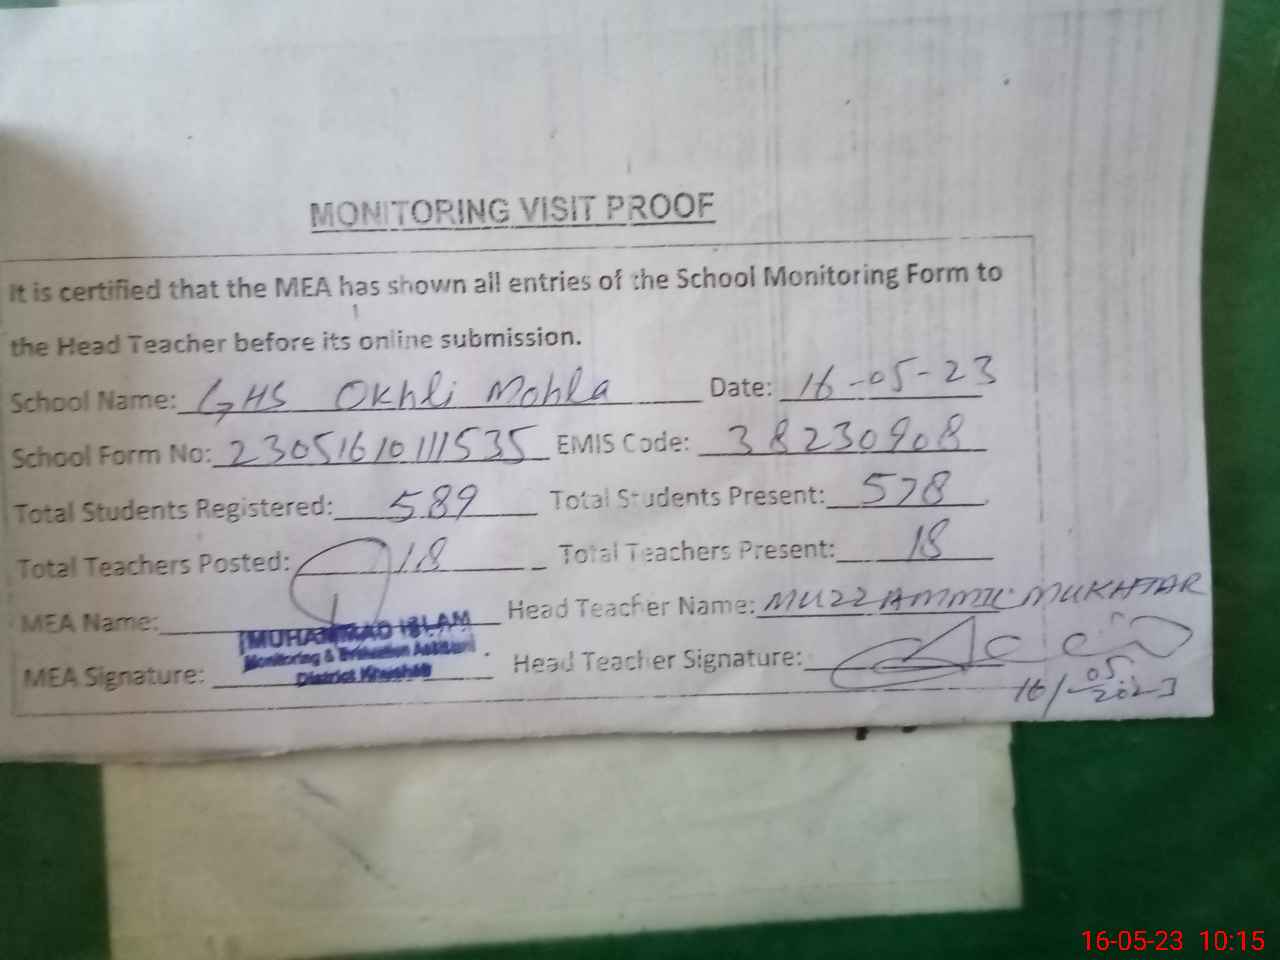 MONITORING VISIT PROOF
It is certified that the MEA has shown all entries of the School Monitoring Form to
the Head Teacher before its online submission.
School Name: GHS Okhli Mohla Date: 16-05-23
School Form No: 23051610111535 EMIS Code: 38230908
Total Students Registered: 589 Total Students Present: 578
Total Teachers Posted: 18 Total Teachers Present: 18
MEA Name: Head Teacher Name: MUZZAMMIL MUKHTAR
MUHAMMAD ISLAM
Monitoring & Evaluation Assistant
MEA Signature: Head Teacher Signature:
District Khushab
16/05/2023
16-05-23 10:15